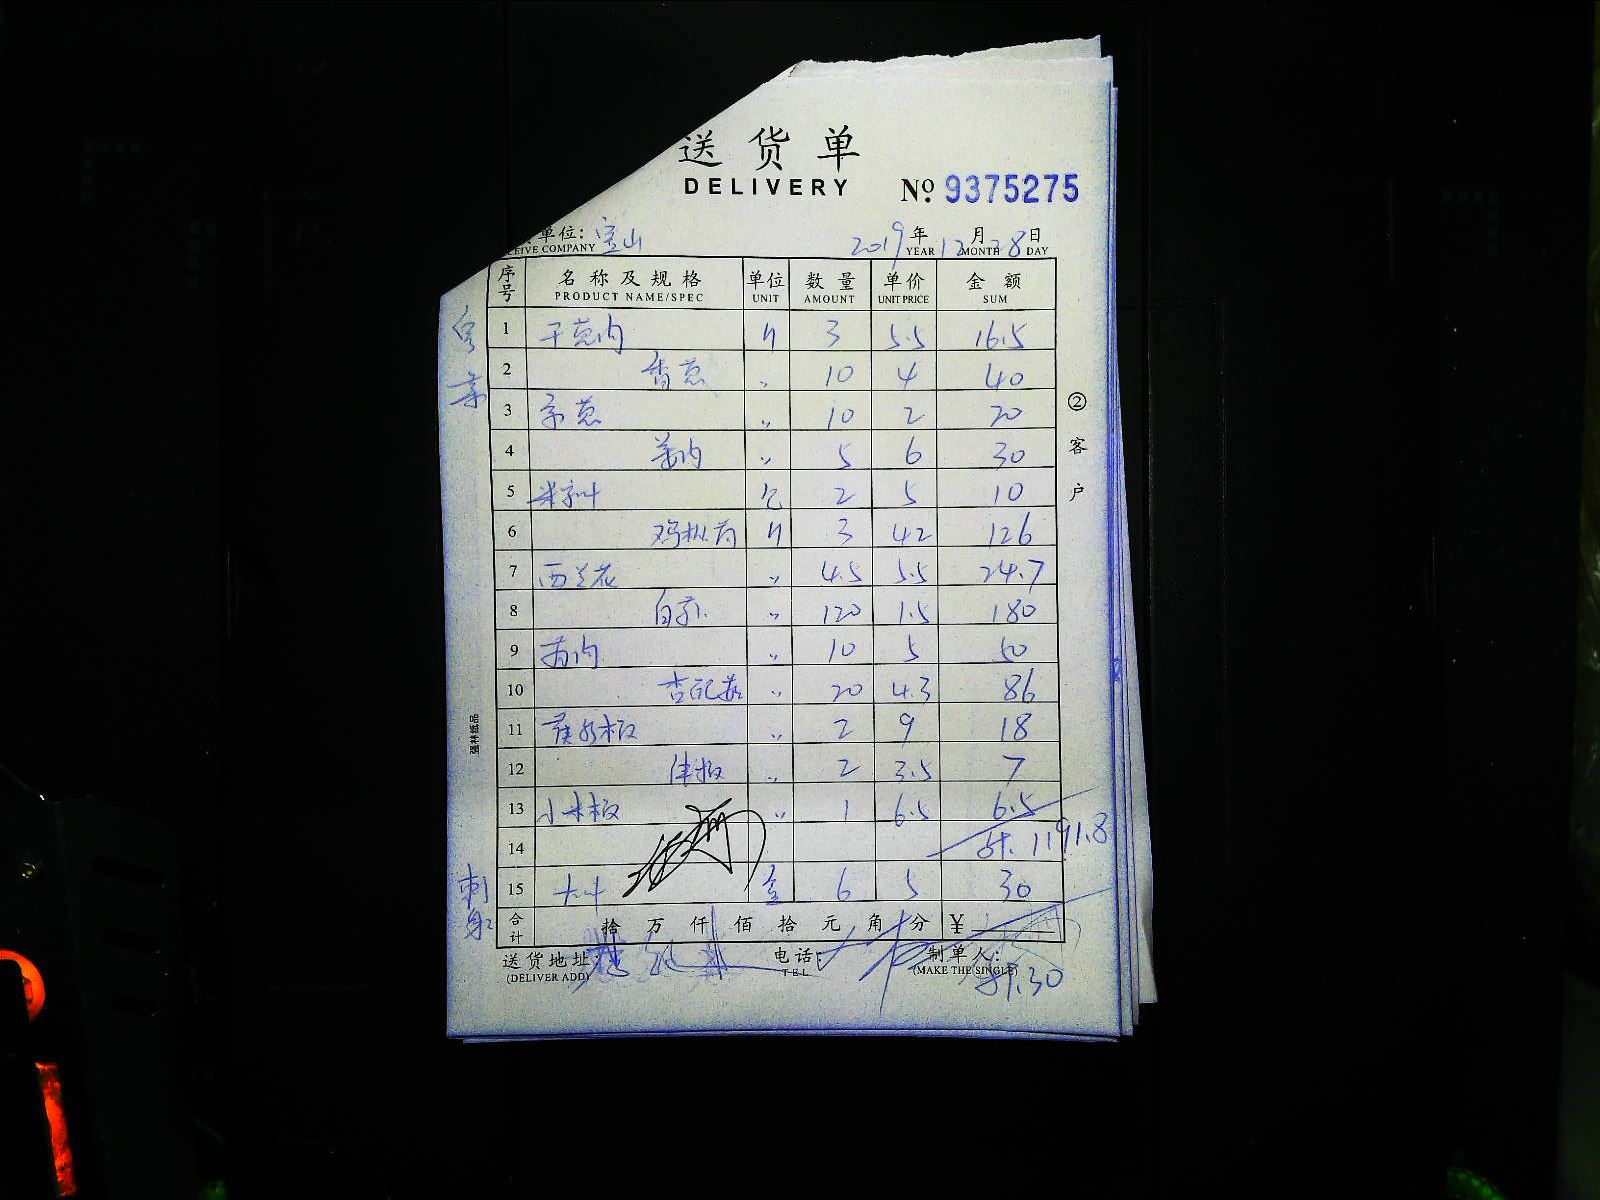 送货单
DELIVERY
№ 9375275
单位: 宝山 2019年12月28日
CEIVE COMPANY YEAR MONTH DAY
序号 名称及规格 单位 数量 单价 金额
PRODUCT NAME/SPEC UNIT AMOUNT UNIT PRICE SUM
1 干葱肉 斤 3 5.5 16.5
2 香葱 〃 10 4 40
3 京葱 〃 10 2 20
4 姜肉 〃 5 6 30
5 2 5 10
6 鸡枞菌 斤 3 42 126
7 西兰花 〃 4.5 5.5 24.7
8 〃 120 1.5 180
9 〃 10 5 50
10 杏鲍菇 〃 20 4.3 86
11 〃 2 9 18
12 〃 2 3.5 7
13 小米椒 〃 1 6.5 6.5
14 1191.8
15 大叶 盒 6 5 30
刺身
合计 拾 万 仟 佰 拾 元 角 分 ¥
送货地址: 电话: 制单人:
(DELIVER ADD) TEL (MAKE THE SINGLE)
30
② 客户
强林纸品